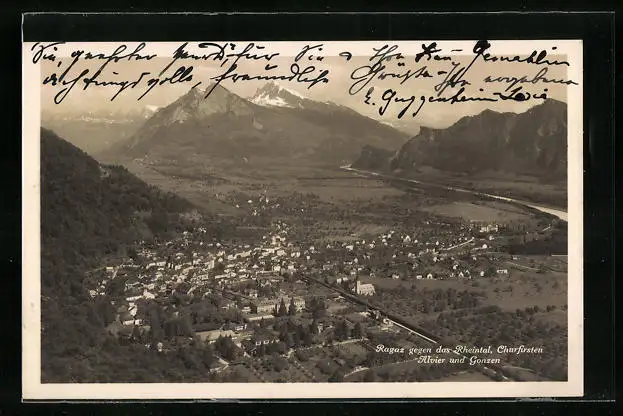 Sie, geehrter Freund für Sie & Ihre Frau Gemahlin
achtungsvolle, freundliche Grüsse Ihr ergebene
E. Guggenheim-Levis
Ragaz gegen das Rheintal, Churfirsten
Alvier und Gonzen